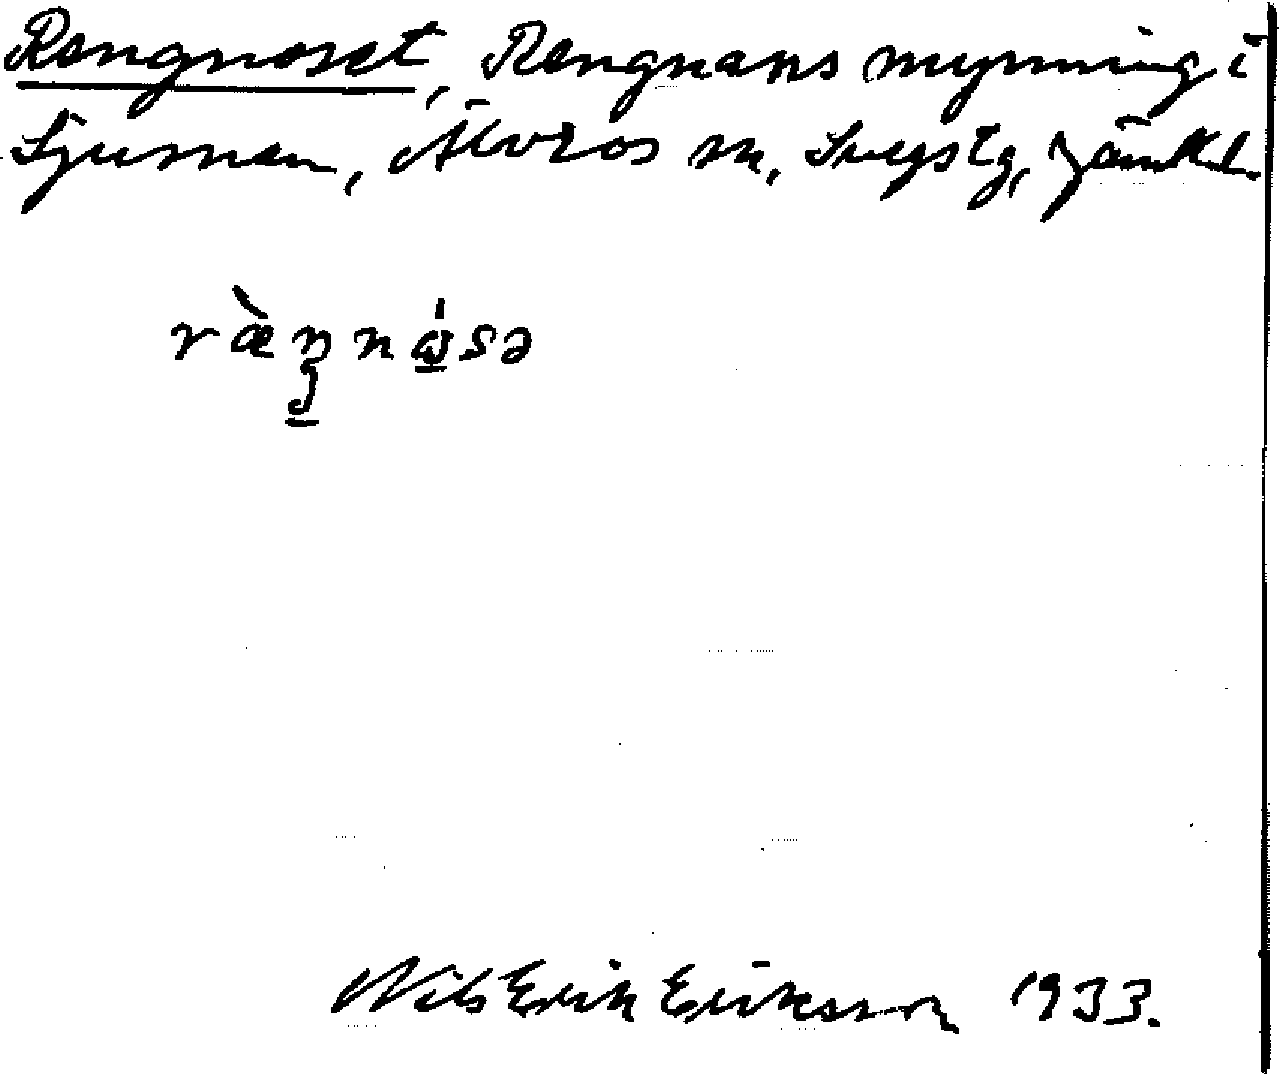 Rengnoset, Rengnans mynning i
Ljusnan, Älvros sn, Svegs tg, Jämtl.
ràŋnώsə
Nils Erik Eriksson 1933.